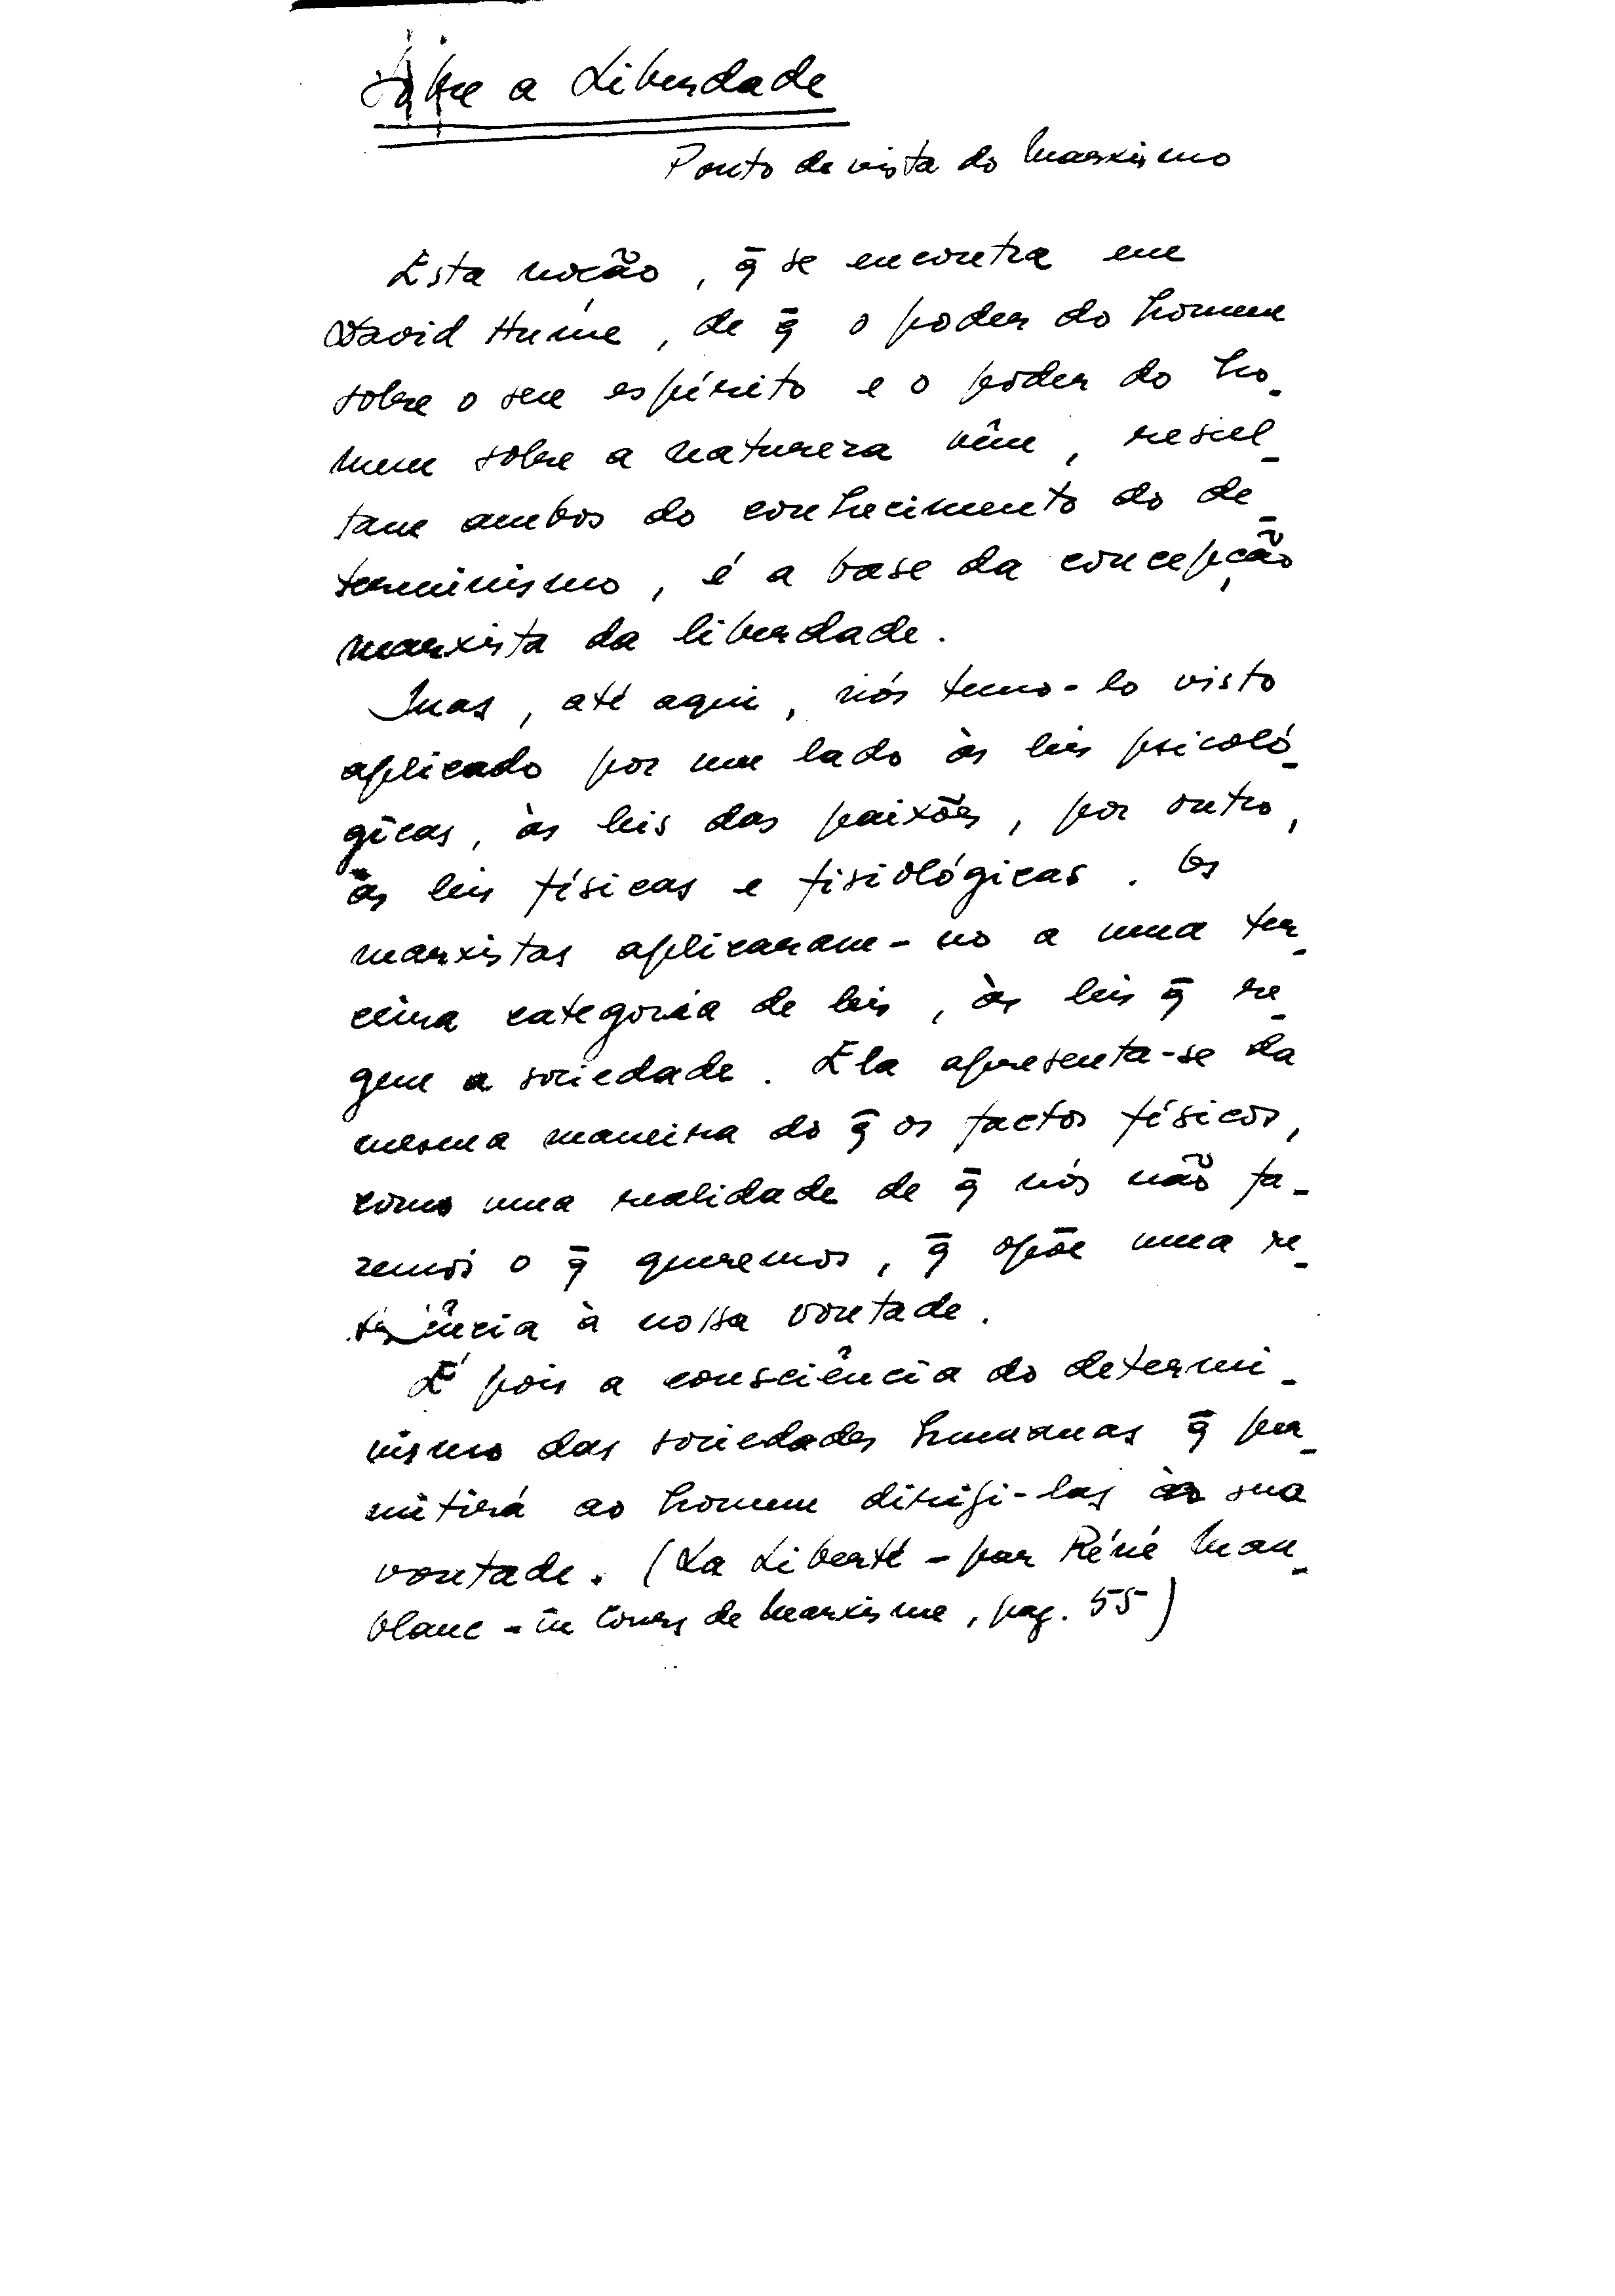 Sôbre a Liberdade
Ponto de vista do Marxismo
Esta noção, q̄ se encontra em
David Hume, de q̄ o poder do homem
sobre o seu espírito e o poder do ho-
mem sobre a natureza vêm, resul-
tam ambos do conhecimento do de-
terminismo, é a base da concepção
marxista da liberdade.
Mas, até aqui, nós temo-lo visto
aplicado por um lado às leis psicoló-
gicas, às leis das paixões, por outro,
às leis físicas e fisiológicas. Os
marxistas aplicaram-no a uma ter-
ceira categoria de leis, às leis q̄ re-
gem a sociedade. Ela apresenta-se da
mesma maneira do q̄ os factos físicos,
como uma realidade de q̄ nós não fa-
zemos o q̄ queremos, q̄ opõe uma re-
à nossa vontade.
É pois a consciência do determi-
nismo das sociedades humanas q̄ per-
mitirá ao homem dirigi-las sua
vontade. (La Liberté - par Réné Mau-
blanc - in Cours de Marxisme, pag. 55)